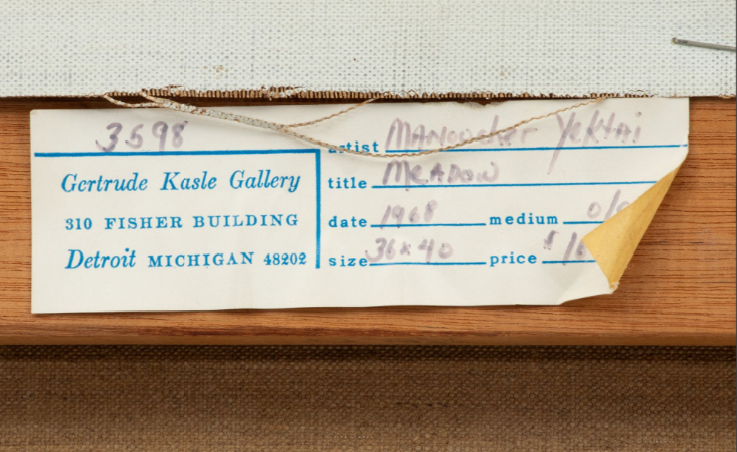 3598
Gertrude Kasle Gallery
310 FISHER BUILDING
Detroit MICHIGAN 48202
artist Manoucher Yektai
title MEADOW
date 1968 medium o/
size 36x40 price $ 16